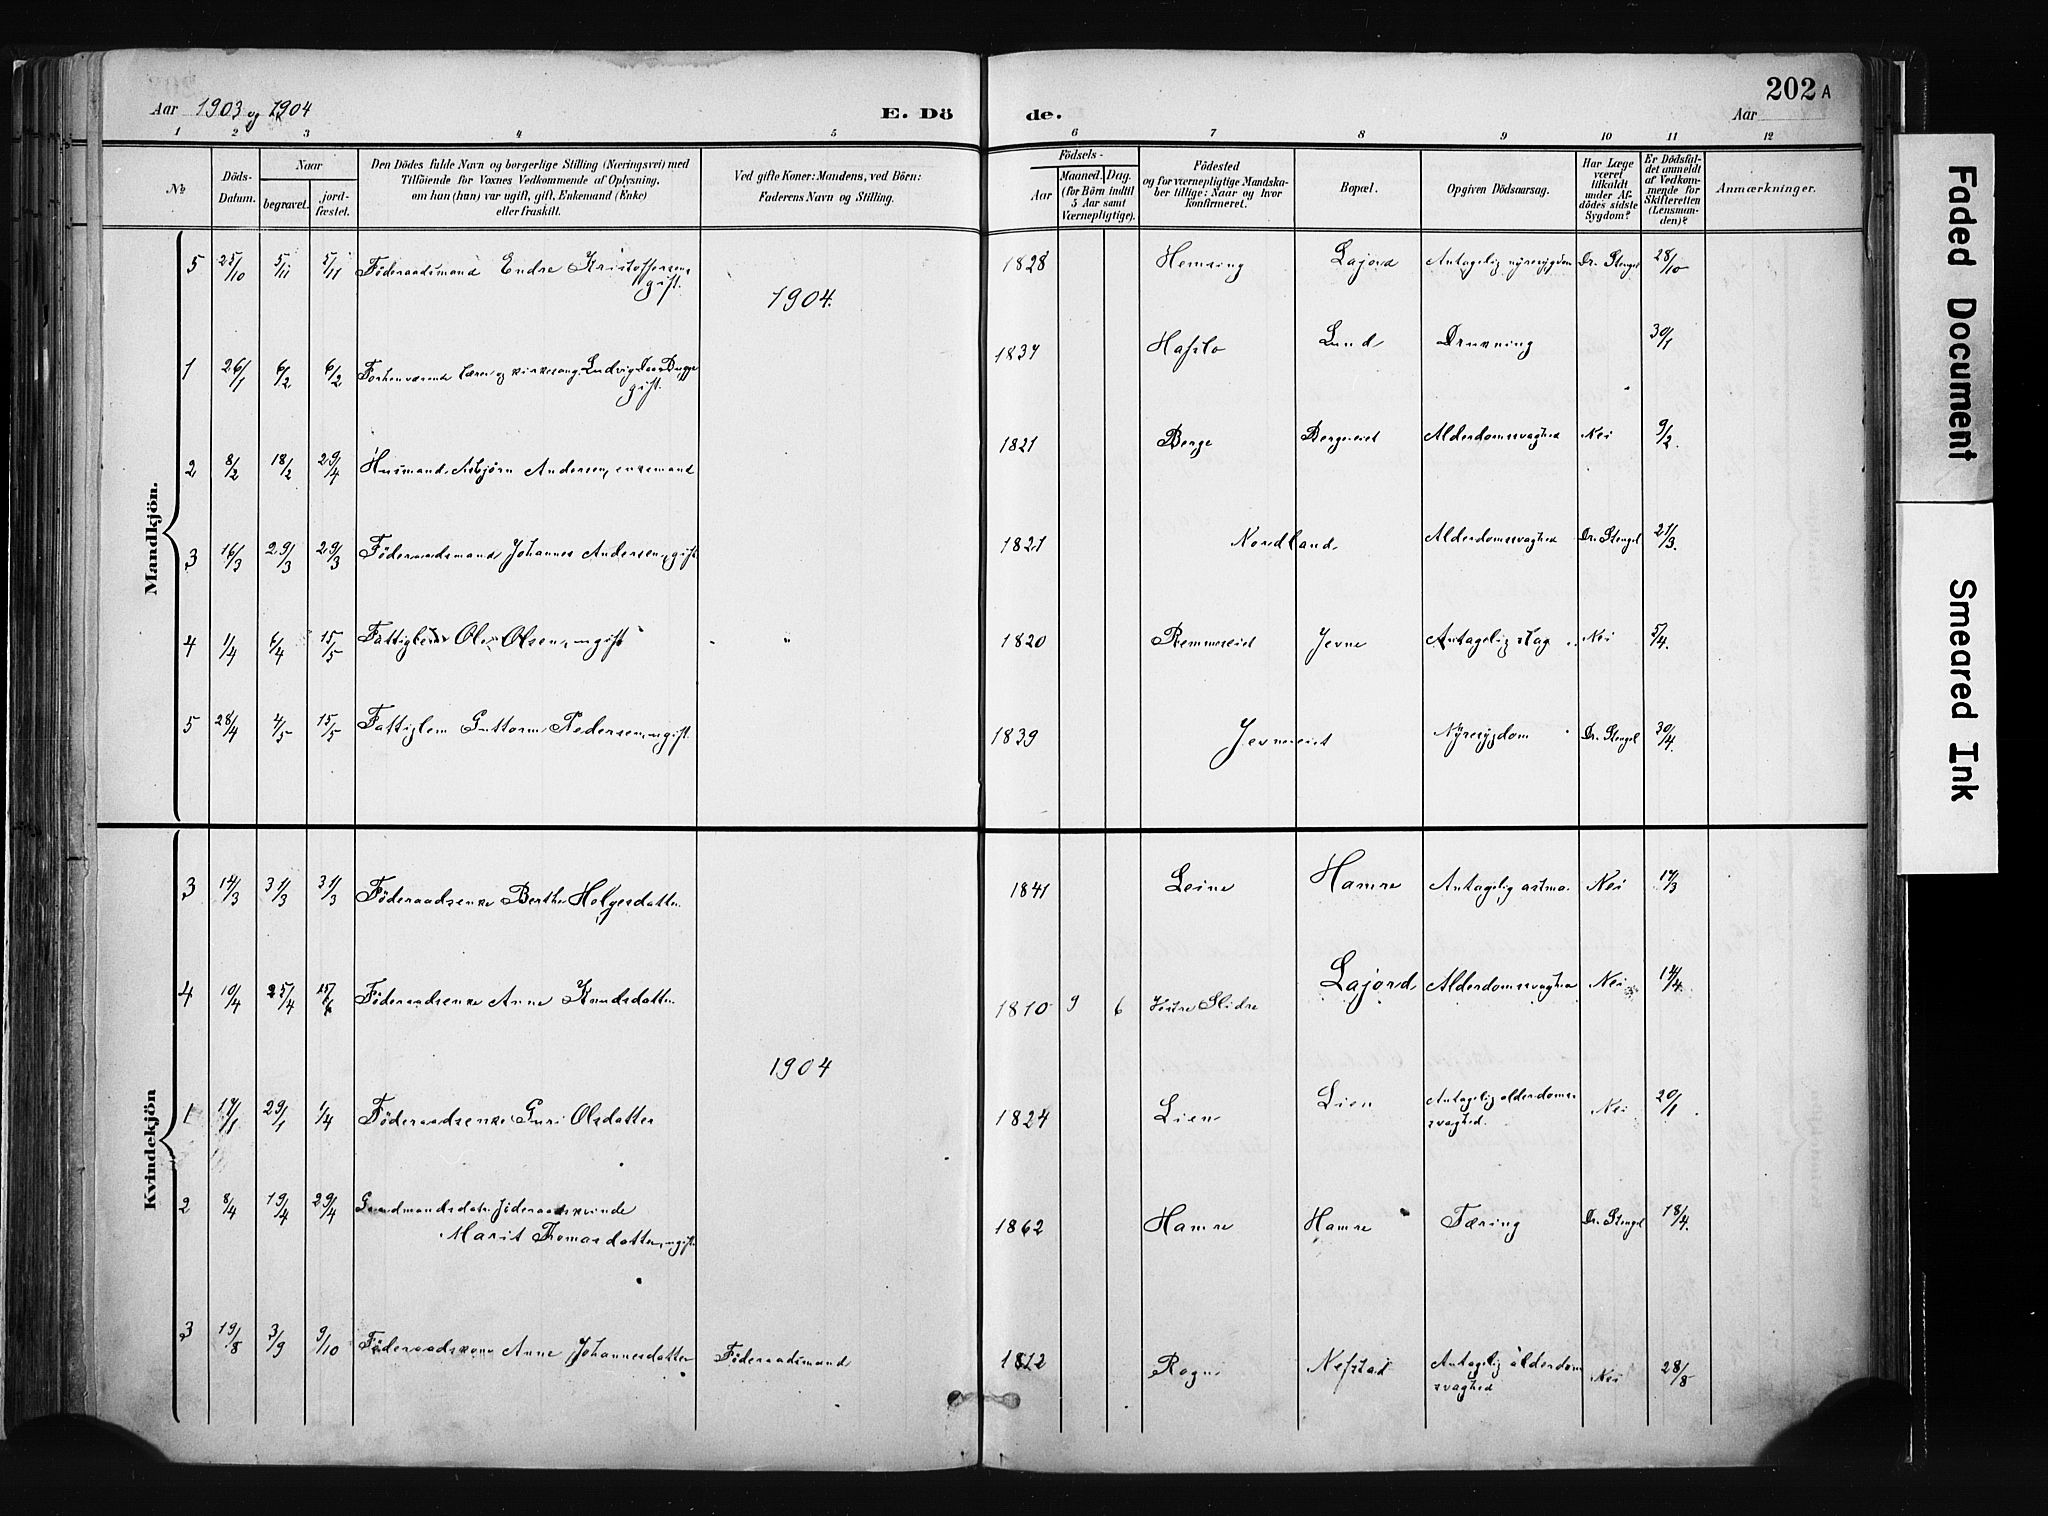 202 A
Aar 1903 og 1904
E. Dö de.
Aar
1 2 3 4 5 6 7 8 9 10 11 12
No
Döds-Datum.
Naar
begravet.
jord-fæstet.
Den Dödes fulde Navn og borgerlige Stilling (Næringsvei) med
Tilföiende for Voxnes Vedkommende af Oplysning,
om han (hun) var ugift, gift, Enkemand (Enke)
eller fraskilt.
Ved gifte Koner: Mandens, ved Börn:
Faderens Navn og Stilling.
Födsels-
Aar
Maaned. Dag.
(for Börn indtil
5 Aar samt
Værnepligtige).
Födested
og for værnepligtige Mandska-
ber tillige: Naar og hvor
konfirmeret.
Bopæl.
Opgiven Dödsaarsag.
Har Læge
været
tilkaldt
under Af-
dödes sidste
Sygdom?
Er Dödsfal-
det anmeldt
af Vedkom-
mende for
Skifteretten
(Lensman-
den)?
Anmærkninger.
Mandkjön.
5 25/10 5/11 5/11 Föderaadsmand Endre Kristoffersen gift. 1828 Hemsing Lajord Antagelig nyresygdom Dr. Stengel 28/10
1904.
1 26/1 6/2 6/2 Forhenværende lærer og kirkesang. Ludvig gift. 1837 Hafslo Lund Drukning 30/1
2 8/2 18/2 29/4 Husmand Asbjörn Andersen, enkemand 1821 Berge Bergeeiet Alderdomssvaghed Nei 9/2.
3 16/3 29/3 29/3 Föderaadsmand Johannes Andersen, gift 1821 Nordland Alderdomssvaghed Dr. Stengel 21/3.
4 1/4 6/4 15/5 Fattiglem Ole Olsen, ugift " 1820 Remmeseiet Jevne Antagelig slag Nei 5/4.
5 28/4 4/5 15/5 Fattiglem Guttorm Pedersen, ugift. 1839 Jevneeiet Nyresygdom Dr. Stengel 30/4.
Kvindekjön
3 14/3 31/3 31/3 Föderaadsenke Berthe Helgesdatter 1841 Leine Hamre Antagelig astma. Nei 17/3
4 10/4 25/4 Föderaadsenke Anne Knudsdatter 1810 9 6 Vestre Slidre Lajord Alderdomssvaghed Nei 14/4.
1904
1 17/1 29/1 1/4 Föderaadsenke Guri Olsdatter 1824 Lien Lien Antagelig alderdoms-
svaghed. Nei 20/1
2 8/4 19/4 29/4 Gaardmandsdatr. föderaadskvinde
Marit Thomasdatter, ugift 1862 Hamre Hamre Tæring Dr. Stengel 18/4.
3 19/8 3/9 9/10 Föderaadskone Anne Johannesdatter Föderaadsmand 1812 Rogn Nefstad Antagelig alderdom
svaghed Nei 28/8
Faded Document
Smeared Ink